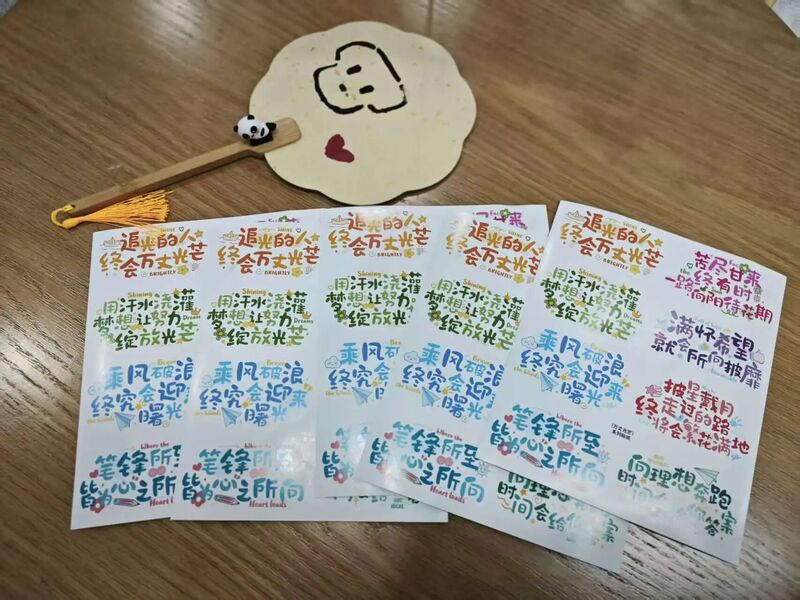 追光的人
SHINE
终会万丈光芒
BRIGHTLY
用汗水浇灌
梦想让努力
绽放光芒
乘风破浪
终究会迎来
曙光
笔锋所至
皆为心之所向
追光的人
SHINE
终会万丈光芒
BRIGHTLY
用汗水浇灌
梦想让努力
绽放光芒
乘风破浪
终究会迎来
曙光
Where the
笔锋所至
皆为心之所向
Heart leads
追光的人
SHINE
终会万丈光芒
BRIGHTLY
Shining
用汗水浇灌
梦想让努力
绽放光芒
乘风破浪
终究会迎
曙光
笔锋所至
皆为心之所向
追光的人
终会万丈光芒
BRIGHTLY
Shining
用汗水浇灌
梦想让努力
绽放光芒
Brave
乘风破浪
终究会迎来
the winds
曙光
Where the
笔锋所至
皆为心之所向
Heart leads
向理想
时间会给你答案
追光的人
SHINE
终会万丈光芒
BRIGHTLY
Shining
用汗水浇灌
梦想让努力
Dreams
绽放光芒
Brave
乘风破浪
终究会迎来
the winds
曙光
Where the
笔锋所至
皆为心之所向
Heart leads
苦尽甘来
终有时
一路向阳待花期
满怀希望
就会所向披靡
披星戴月
终走过的路
将会繁花满地
(万丈光芒)
系列贴纸
向理想奔跑
时间会给你答案